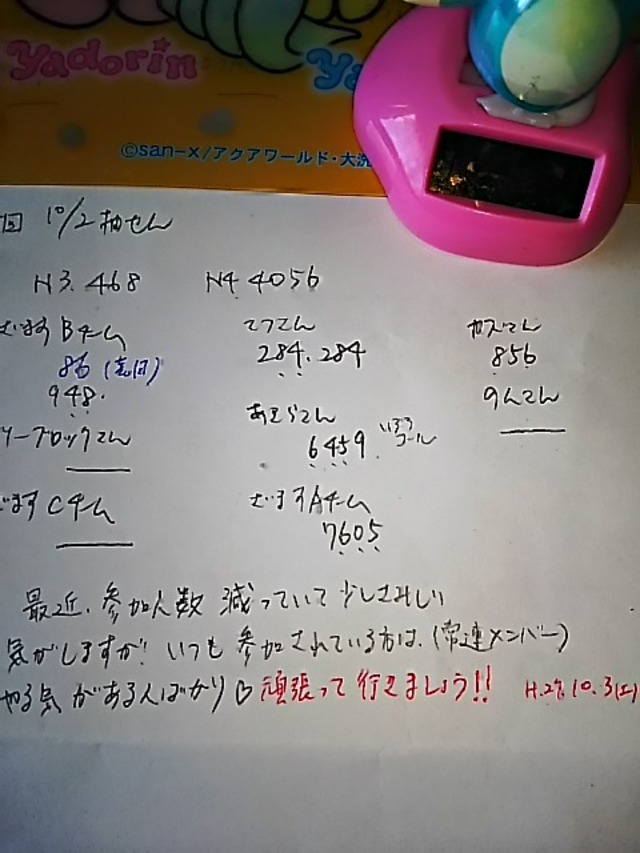 Yadorin
©san-x/アクアワールド・大洗
回 10/2抽せん
N3. 468 N4 4056
むます Bチーム てつてん
86 284. 284 856
948.
6459 コール
ブロックてん
むます Cチーム むます Aチーム
7605
最近、参加人数 減っていて 少しさみしい
気がしますが! いつも 参加されている方は、(常連メンバー)
やる気がある人ばかり♡ 頑張って 行きましょう!! H.27.10.3(土)